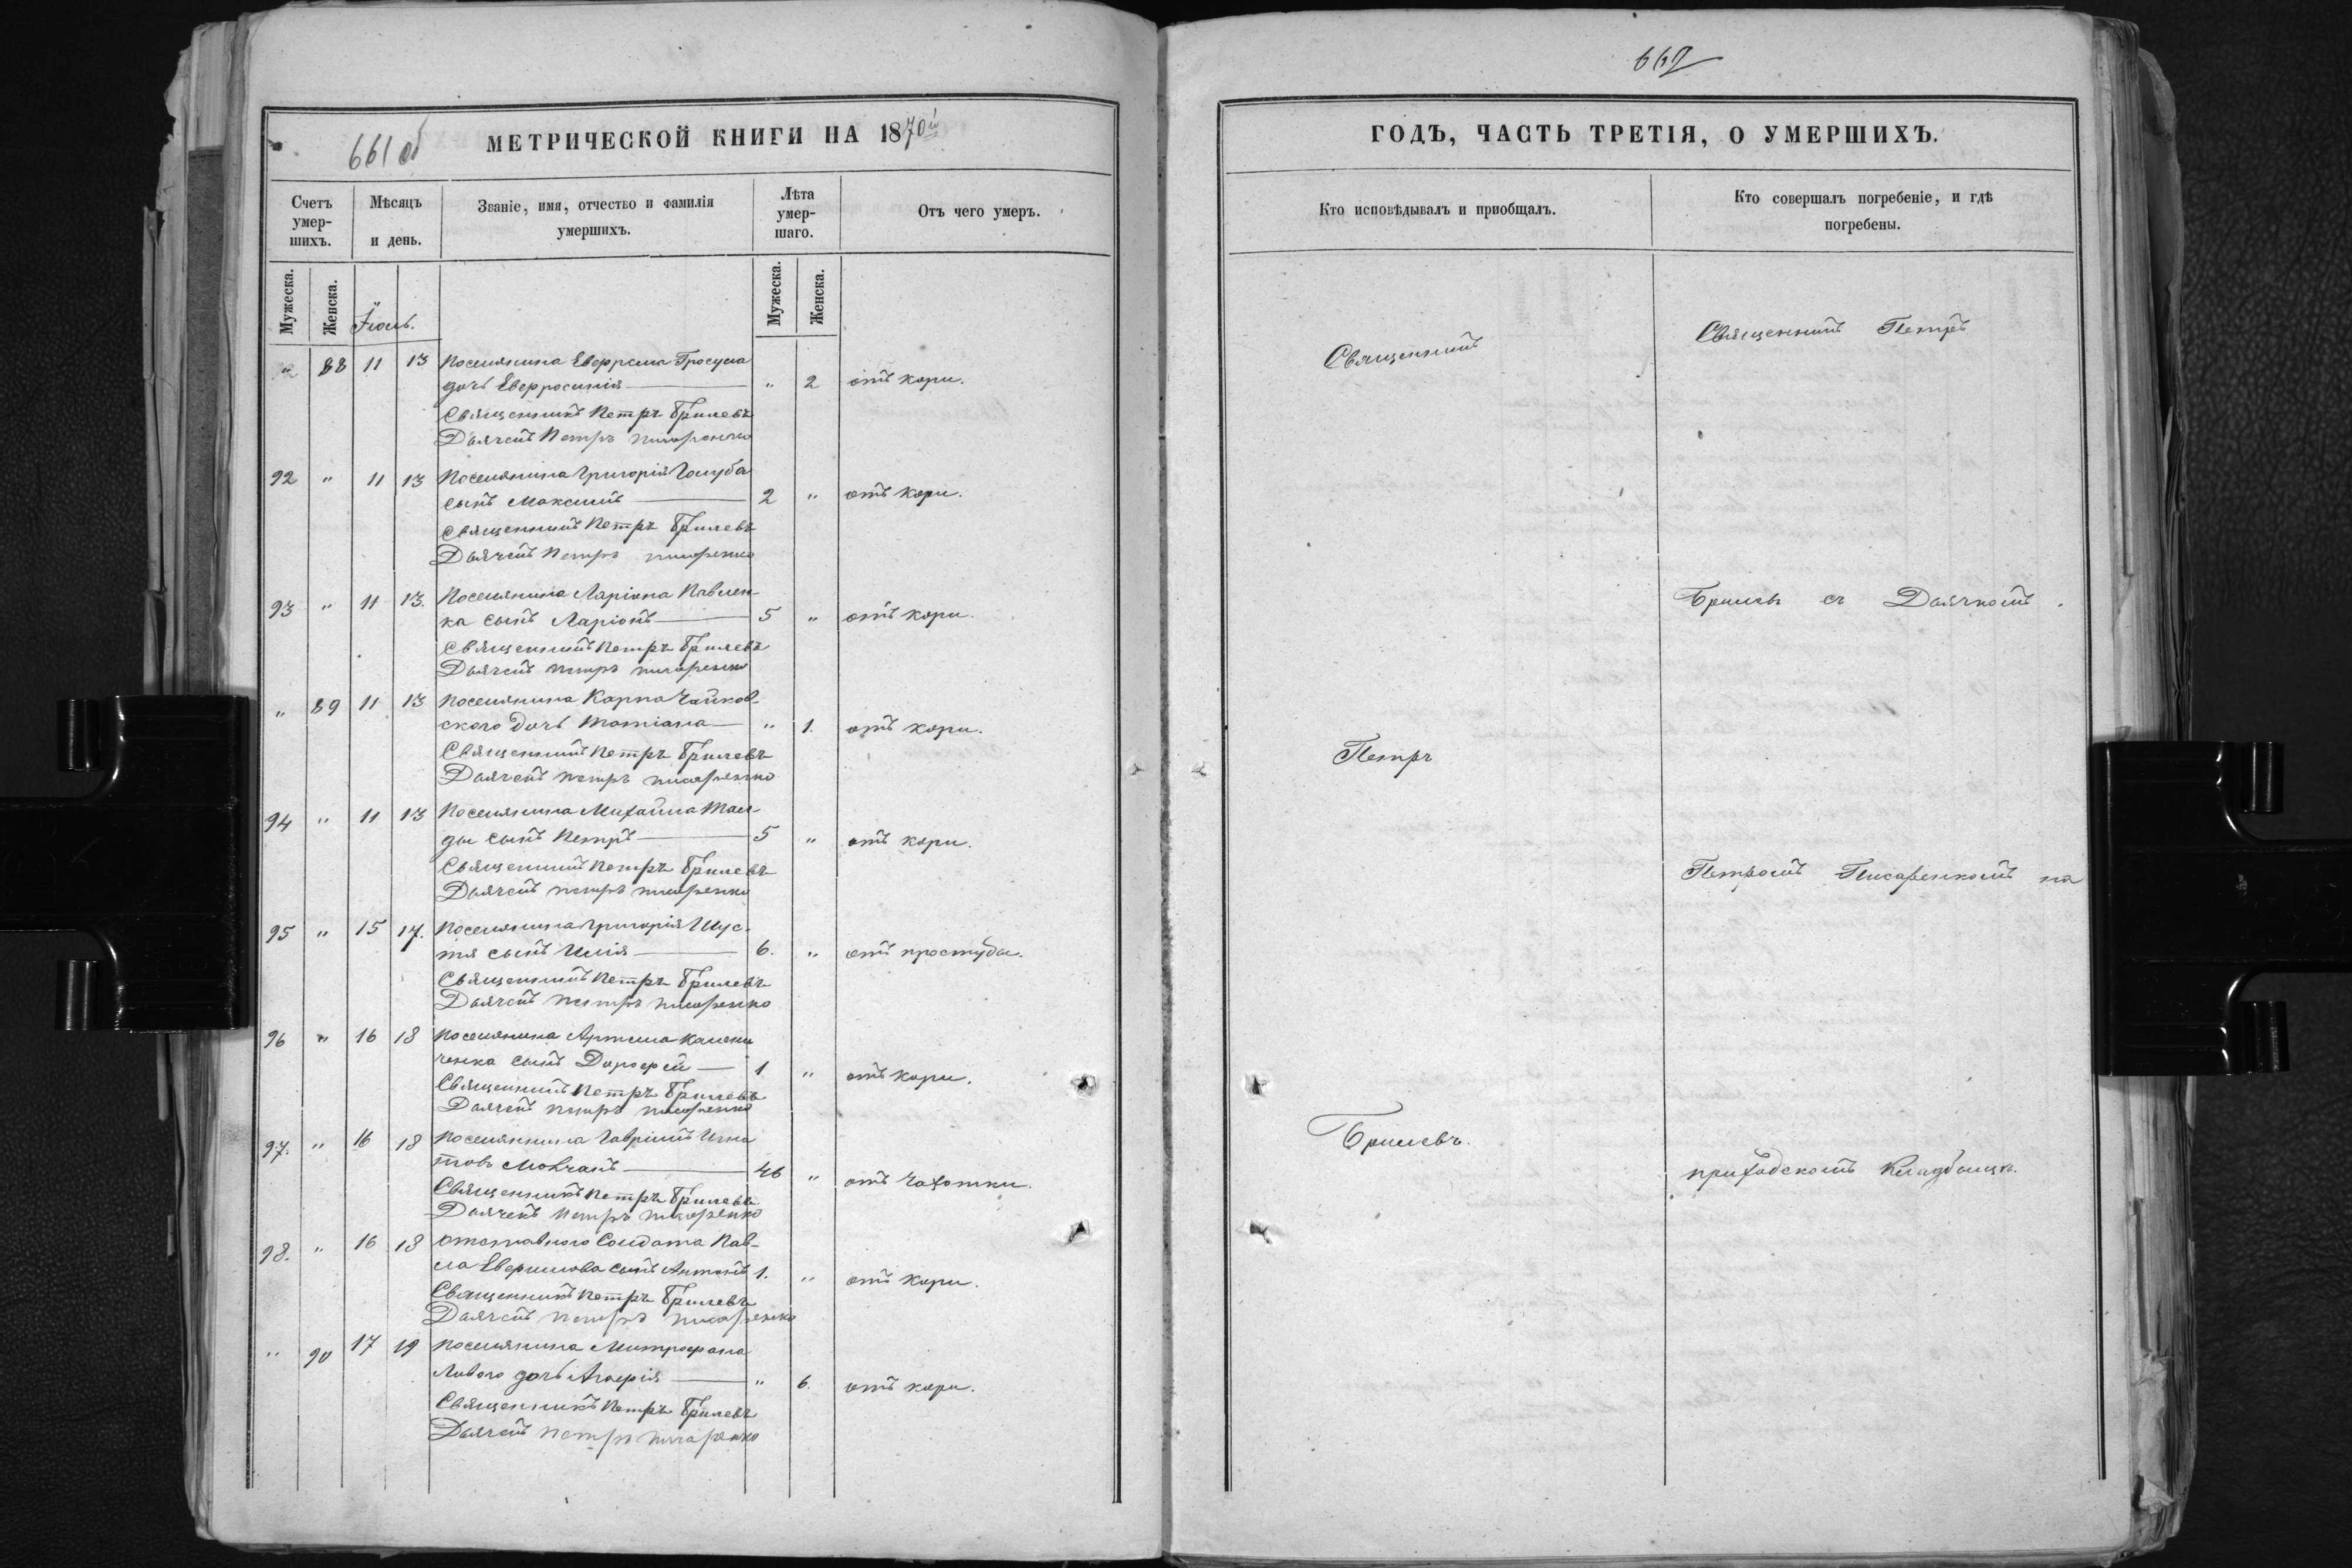 661 об
МЕТРИЧЕСКОЙ КНИГИ НА 1870й
Счетъ умер-шихъ.
Мѣсяцъ и день.
Званіе, имя, отчество и фамилія умершихъ.
Лѣта умер-шаго.
Отъ чего умеръ.
Мужеска. Женска.
Мужеска. Женска.
Іюль.
" 88 11 13 Поселянина
дочь Евфросинія " 2 отъ кори.
Священникъ Петръ Брилевъ
Дьячекъ Петръ Писаренко
92 " 11 13 Поселянина Григорія Голуба
сынъ Максимъ 2 " отъ кори.
Священникъ Петръ Брилевъ
Дьячекъ Петръ Писаренко
93 " 11 13. Поселянина Ларіона Павлен-
ка сынъ Ларіонъ 5 " отъ кори.
Священникъ Петръ Брилевъ
Дьячекъ Петръ Писаренко
" 89 11 13 Поселянина Карпа Чайков-
ского дочь Татіана " 1. отъ кори.
Священникъ Петръ Брилевъ
Дьячекъ Петръ Писаренко
94 " 11 13 Поселянина Михайла
сынъ Петръ 5 " отъ кори.
Священникъ Петръ Брилевъ
Дьячекъ Петръ Писаренко
95 " 15 17. Поселянина Григорія Шус-
тя сынъ Илія 6. " отъ простуды.
Священникъ Петръ Брилевъ
Дьячекъ Петръ Писаренко
96 " 16 18 Поселянина Артема
ченка сынъ Дорофей 1 " отъ кори.
Священникъ Петръ Брилевъ
Дьячекъ Петръ Писаренко
97. " 16 18 Поселянинъ Гавріилъ Игна
товъ Мовчанъ 46 " отъ чахотки.
Священникъ Петръ Брилевъ
Дьячекъ Петръ Писаренко
98. " 16 18 Отставного Солдата Пав-
ла сынъ Антонъ 1. " отъ кори.
Священникъ Петръ Брилевъ
Дьячекъ Петръ Писаренко
" 90 17 19 Поселянина Митрофана
дочь Агафія " 6. отъ кори.
Священникъ Петръ Брилевъ
Дьячекъ Петръ Писаренко
662
ГОДЪ, ЧАСТЬ ТРЕТІЯ, О УМЕРШИХЪ.
Кто исповѣдывалъ и приобщалъ.
Кто совершалъ погребеніе, и гдѣ погребены.
Священникъ
Петръ
Брилевъ.
Священникъ Петръ
Брилевъ съ Дьячкомъ
Петромъ Писаренкомъ на
приходскомъ кладбищѣ.